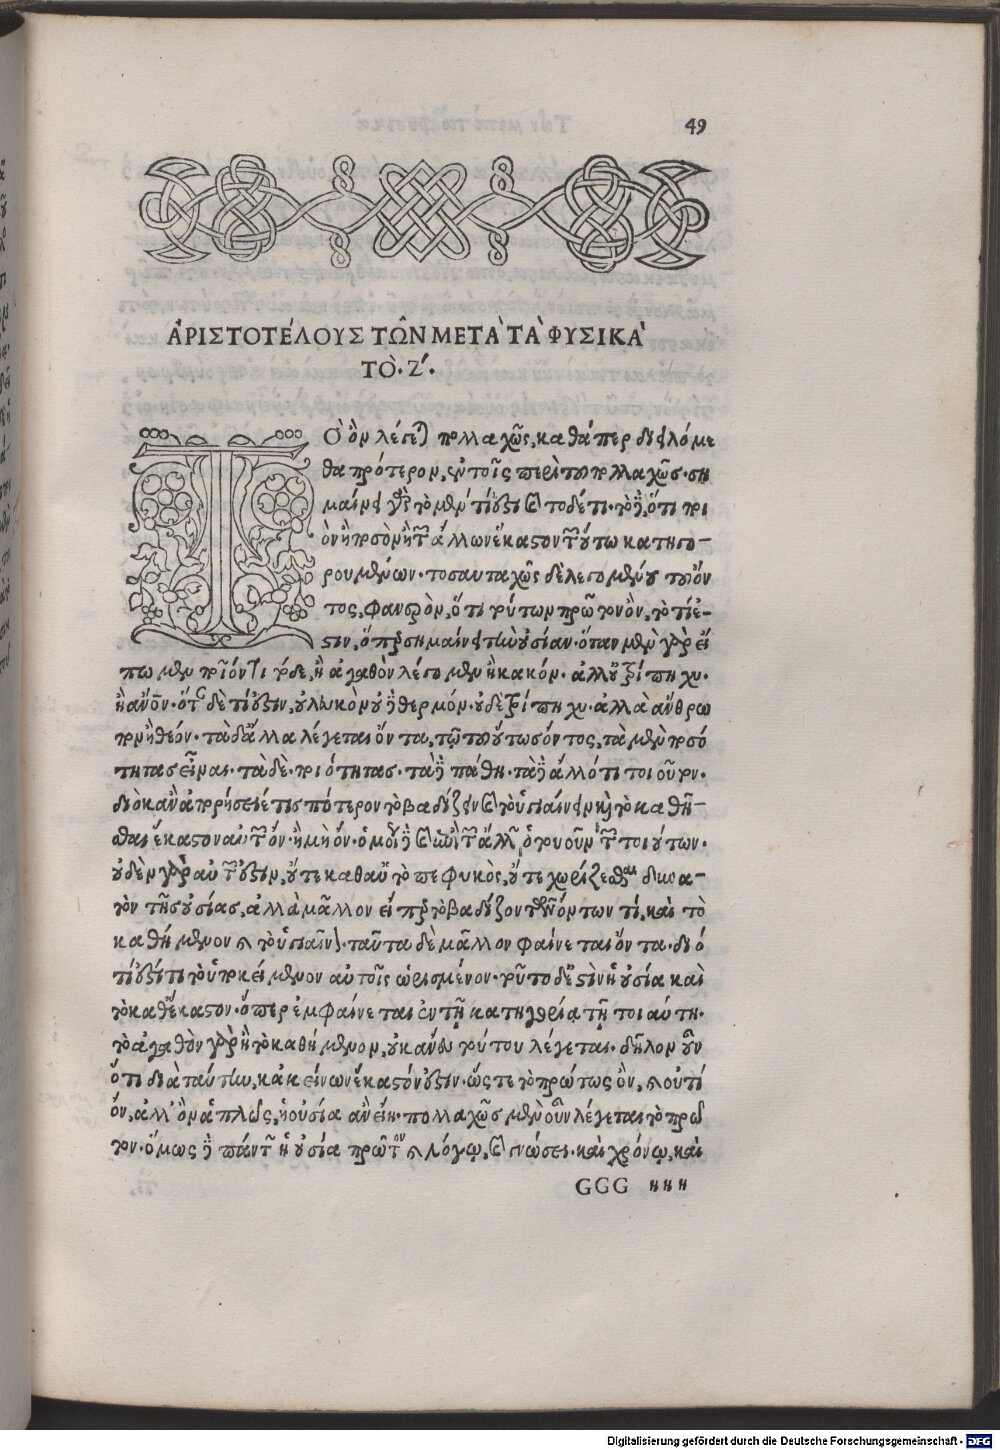 49
ἈΡΙΣΤΟΤΈΛΟΥΣ ΤΩ͂Ν ΜΕΤᾺ ΤᾺ ΦΥΣΙΚᾺ
ΤῸ· Ζ΄·
ΤΟ ὂν λέγεται πολλαχῶς, καθάπερ διειλόμε
θα πρότερον, ἐν τοῖς περὶ τοῦ πολλαχῶς· ση
μαίνει γὰρ τὸ μὲν τί ἐστι καὶ τόδέ τι· τὸ δὲ, ὅτι ποι
ὸν ἢ ποσὸν ἢ τῶν ἄλλων ἕκαστον τῶν οὕτω κατηγο-
ρουμένων· τοσαυταχῶς δὲ λεγομένου τοῦ ὄν
τος, φανερὸν, ὅτι τούτων πρῶτον ὂν, τὸ τί ἐ-
στιν, ὅπερ σημαίνει τὴν οὐσίαν· ὅταν μὲν γὰρ εἴ
πωμεν ποῖόν τι τόδε, ἢ ἀγαθὸν λέγομεν ἢ κακόν· ἀλλ' οὐ τρίπηχυ·
ἢ ἄνον· ὅταν δὲ τί ἐστιν, οὐ λευκὸν οὐδὲ θερμόν· οὐδὲ τρίπηχυ· ἀλλὰ ἄνθρω
πον ἢ θεόν· τὰ δ' ἄλλα λέγεται ὄντα, τῷ τοῦ οὕτως ὄντος, τὰ μὲν ποσό
τητας εἶναι· τὰ δὲ· ποιότητας· τὰ δὲ πάθη· τὰ δὲ ἄλλό τι τοιοῦτον·
διὸ κἂν ἀπορήσειέ τις πότερον τὸ βαδίζειν καὶ τὸ ὑγιαίνειν καὶ τὸ καθῆ-
θαι ἕκαστον αὐτῶν ὄν· ἢ μὴ ὄν· ὁμοίως δὲ καὶ ἐπὶ τῶν ἄλλων ὁτουοῦν τῶν τοιούτων·
οὐδὲν γὰρ αὐτῶν ἐστιν, οὔτε καθ' αὑτὸ πεφυκὸς, οὔτε χωρίζεσθαι δυνα-
τὸν τῆς οὐσίας, ἀλλὰ μᾶλλον εἴπερ τὸ βαδίζον τῶν ὄντων τι, καὶ τὸ
καθήμενον καὶ τὸ ὑγιαῖνον· ταῦτα δὲ μᾶλλον φαίνεται ὄντα· διό
τι ἐστί τι τὸ ὑποκείμενον αὐτοῖς ὡρισμένον· τοῦτο δ' ἐστὶν ἡ οὐσία καὶ
τὸ καθ' ἕκαστον· ὅπερ ἐμφαίνεται ἐν τῇ κατηγορίᾳ τῇ τοιαύτῃ·
τὸ ἀγαθὸν γὰρ ἢ τὸ καθήμενον, οὐκ ἄνευ τούτου λέγεται· δῆλον οὖν
ὅτι διὰ ταύτην, κἀκείνων ἕκαστόν ἐστιν· ὥστε τὸ πρώτως ὂν, καὶ οὐ τί
ὄν, ἀλλ' ὂν ἁπλῶς, ἡ οὐσία ἂν εἴη· πολλαχῶς μὲν οὖν λέγεται τὸ πρῶ
τον· ὅμως δὲ πάντων ἡ οὐσία πρῶτον καὶ λόγῳ, καὶ γνώσει· καὶ χρόνῳ, καὶ
GGG ννν
Digitalisierung gefördert durch die Deutsche Forschungsgemeinschaft - DFG